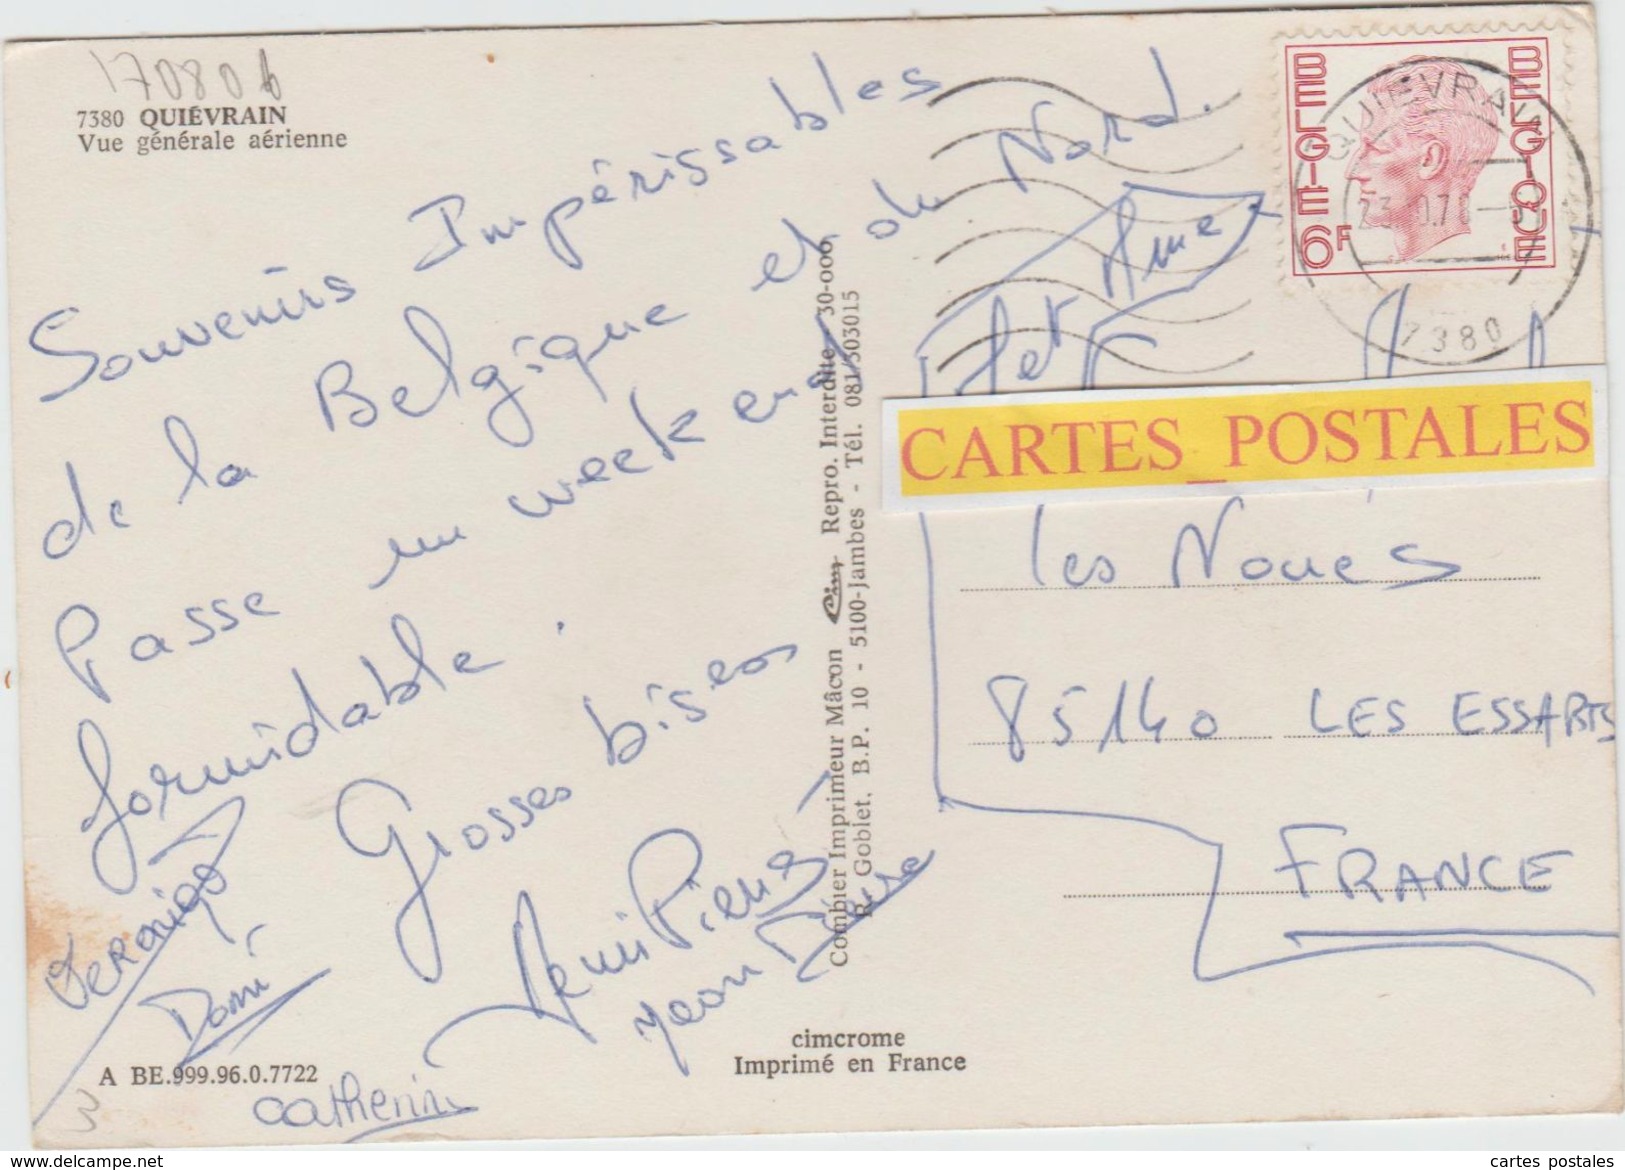 170806
7380 QUIÉVRAIN
Vue générale aérienne
Souvenirs Impérissables
de la Belgique et du Nord.
Passe un week end
formidable.
Grosses bises
Veroniqe
Domi
Catherine
Jean
A BE.999.96.0.7722
cimcrome
Imprimé en France
Combier Imprimeur Mâcon Cim Repro. Interdite 30-000
R. Goblet, B.P. 10 - 5100-Jambes - Tél. 081/303015
BELGIE BELGIQUE
6F
QUIEVRAIN
7380
et Mme
CARTES_POSTALES
les Noués
85140 LES ESSARTS
FRANCE
www.delcampe.net
cartes postales